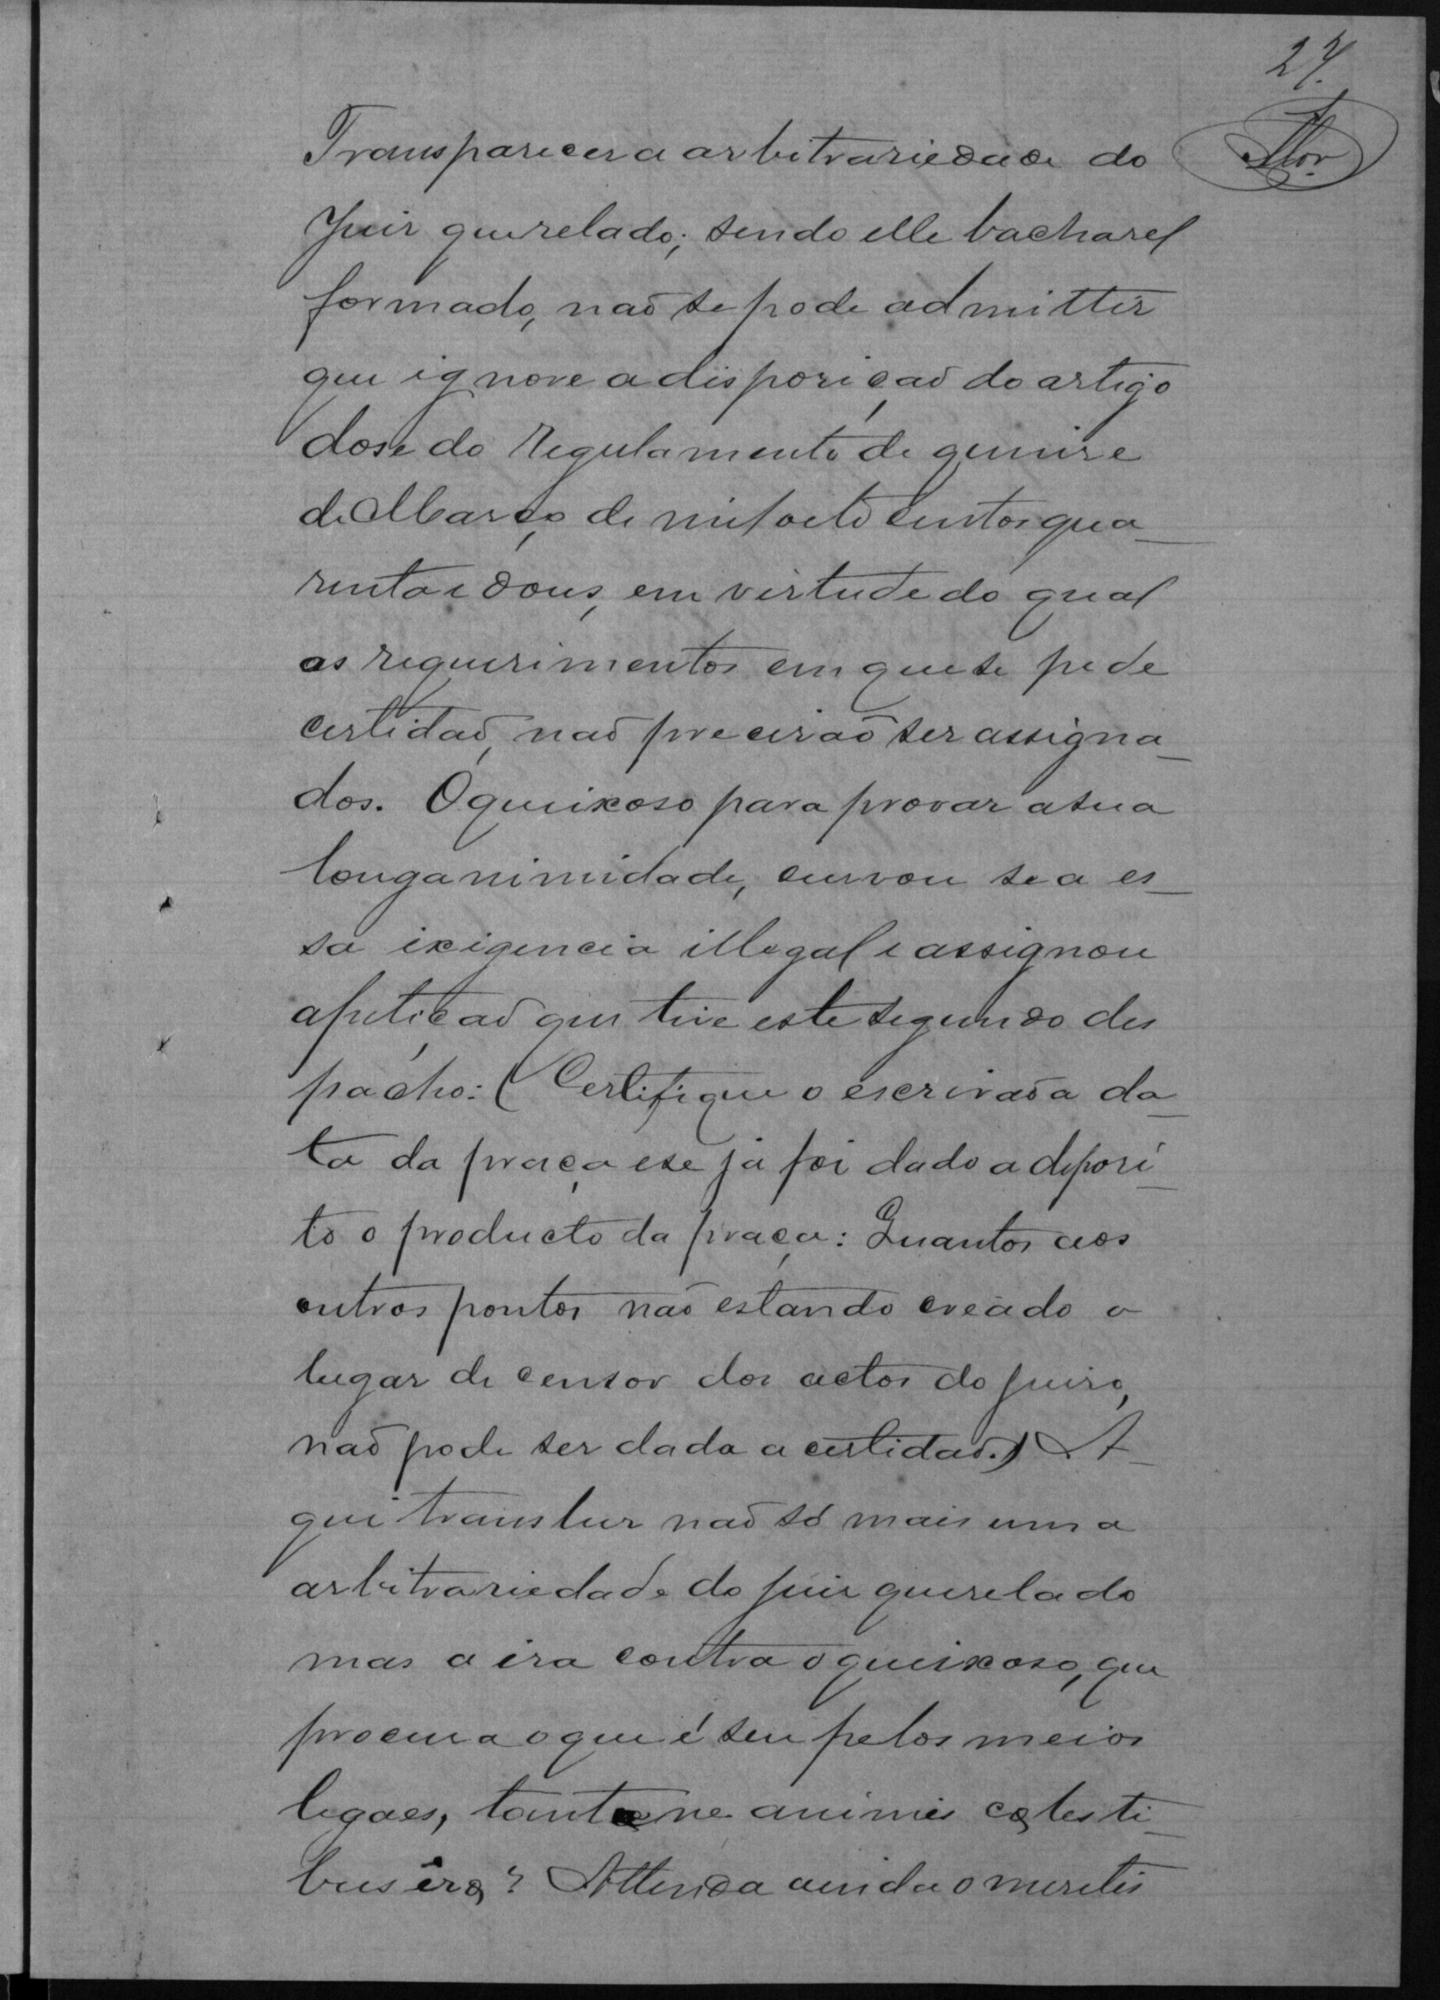 27.
Flor.
Transparecer a arbitrariedade do
Juiz querelado; sendo elle bacharel
formado, naõ se pode admittir
que ignore a disposiçaõ do artigo
dose do Regulamento de quinze
de Março de mil oito centos qua_
renta e dous, em virtude do qual
os requerimentos em que se pede
certidaõ, naõ precisaõ ser assigna_
dos. O queixoso para provar a sua
longanimidade, curvou se a es_
sa exigencia illegal e assignou
a petiçaõ que teve este segundo des
pacho: (Certifique o escrivaõ a da_
ta da praça e se já foi dado a deposi_
to o producto da praça: Quantos aos
outros pontos naõ estando creado o
lugar de censor dos actos do juizo,
naõ pode ser dada a certidaõ.) A_
qui transluz naõ só mais uma
arbitrariedade do juiz querelado
mas a ira contra o queixoso, que
procura o que é seu pelos meios
legaes, tantæne animis cælesti_
bus iræ? Attenda ainda o meretis